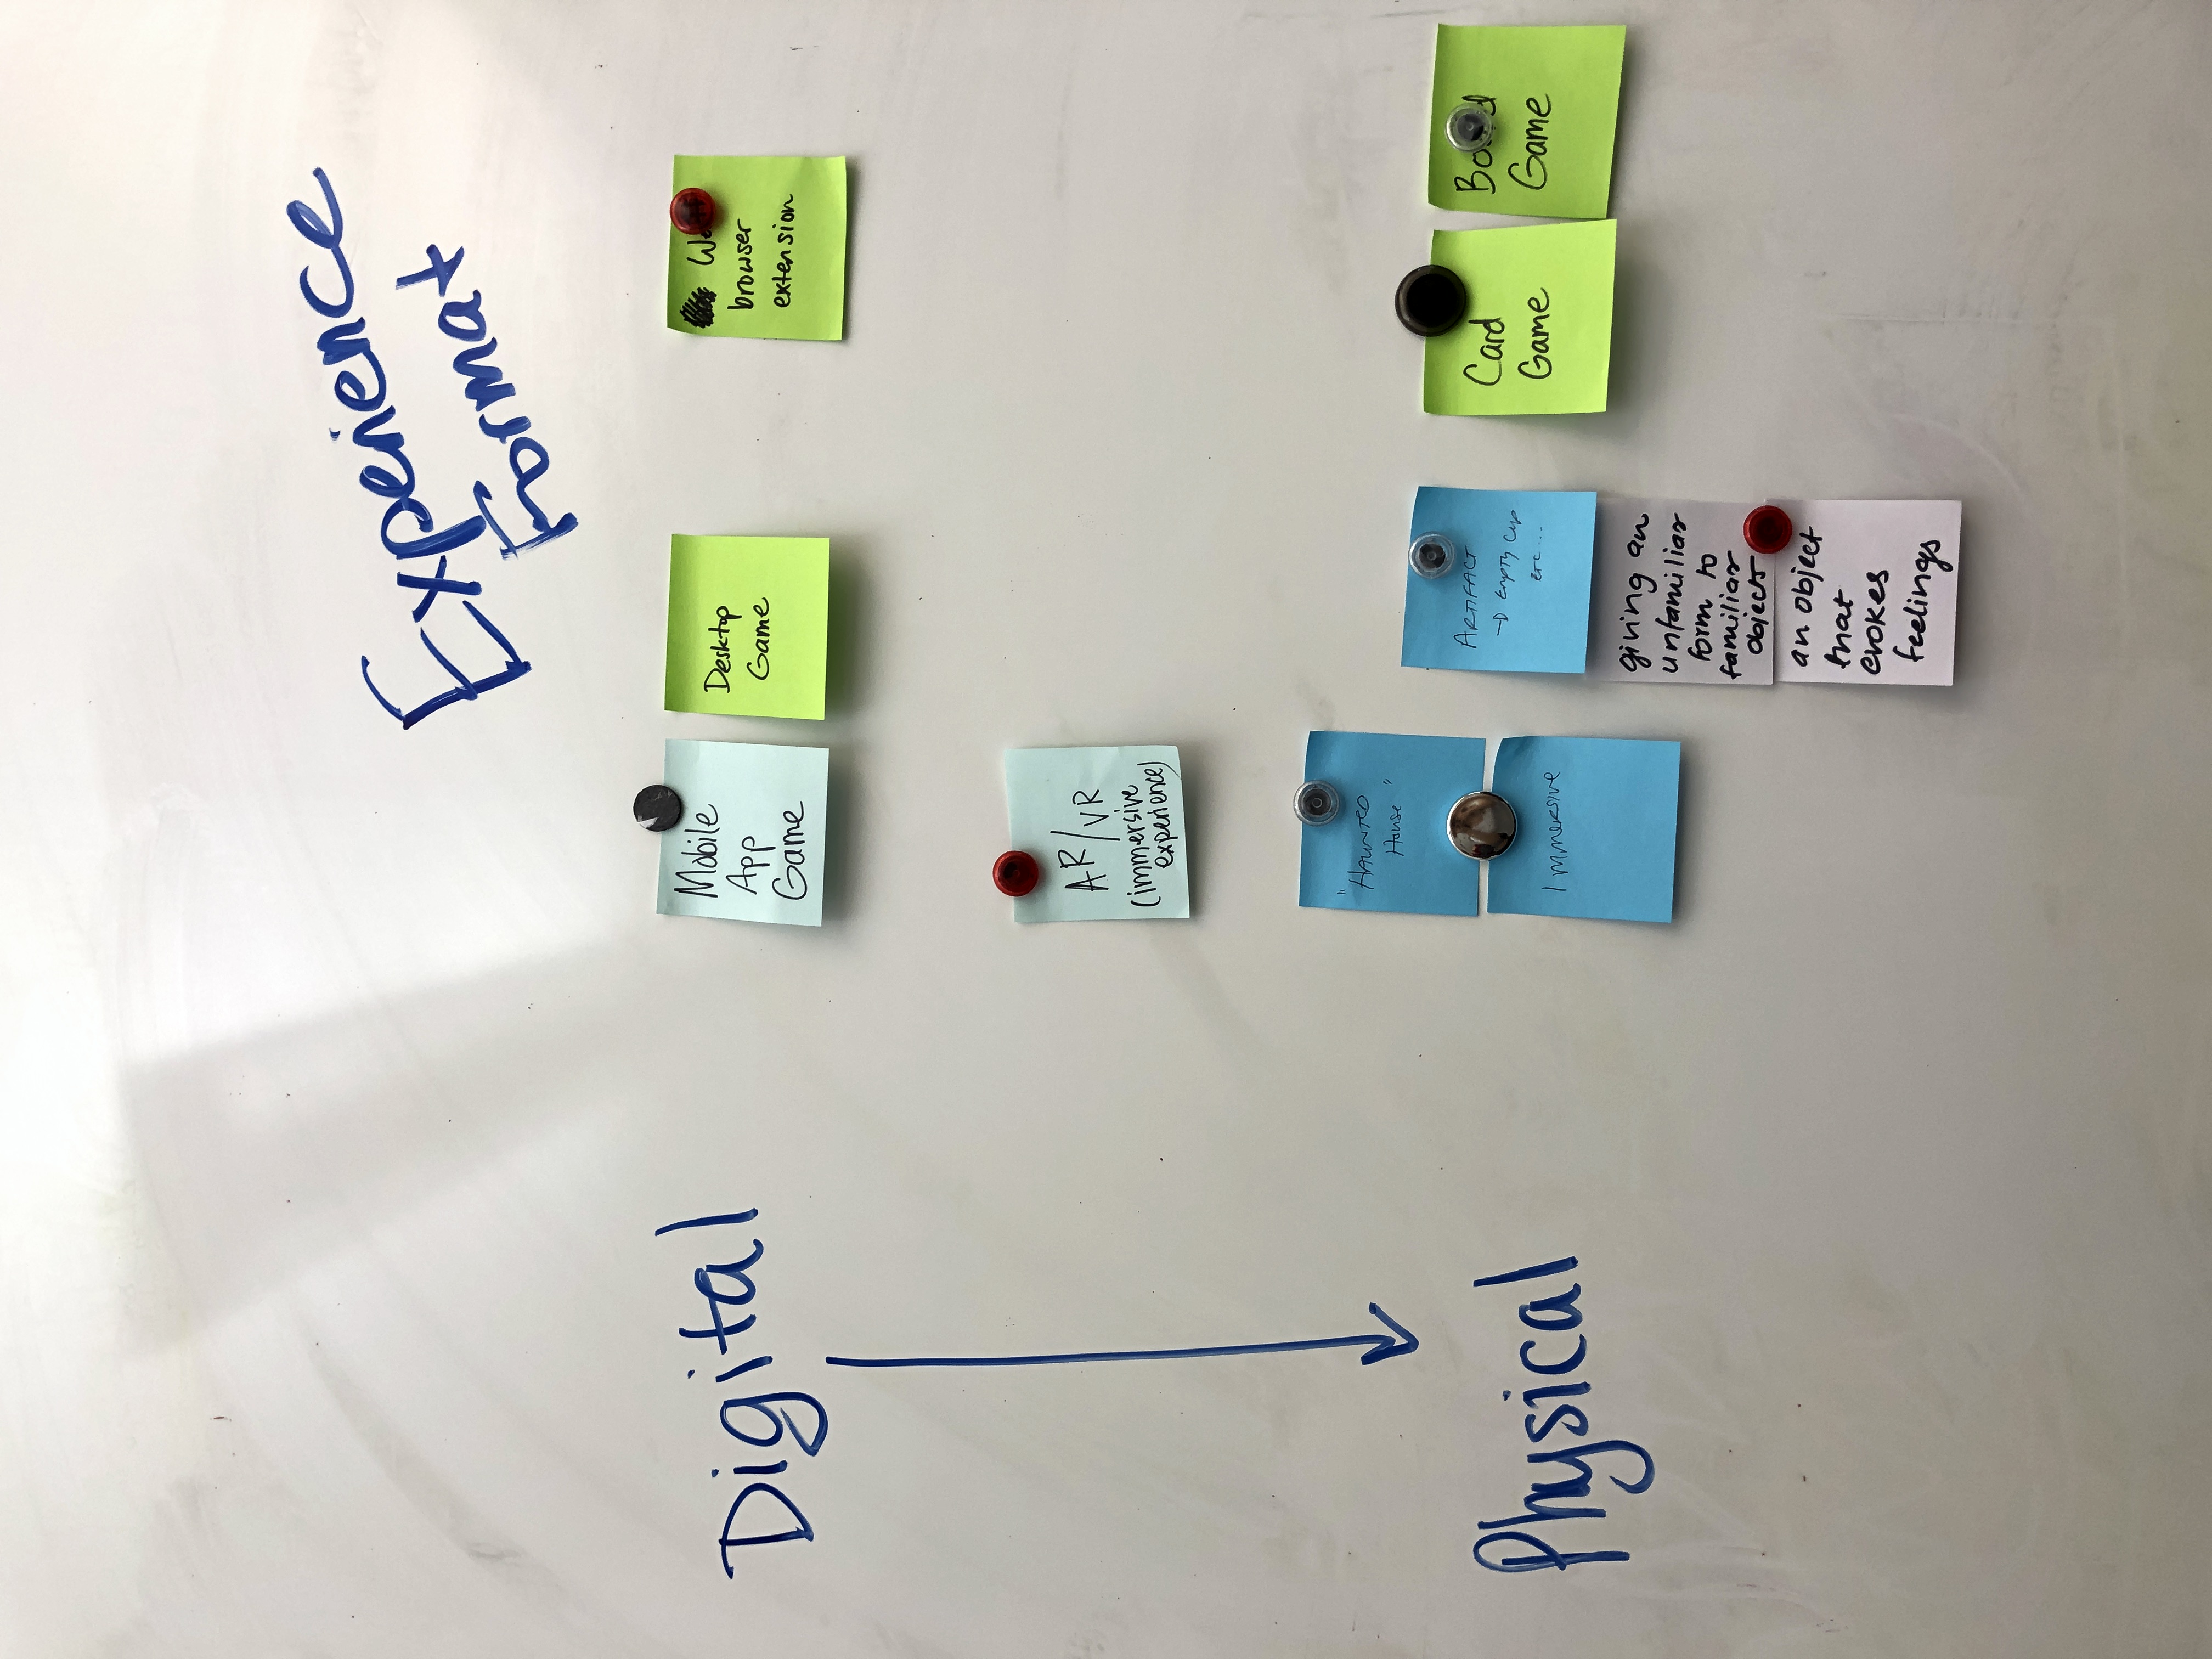 Experience
Format
Digital
Mobile
App
Game
Desktop
Game
browser
extension
AR/VR
(immersive
experience)
"HAUNTED
House"
Immersive
Physical
ARTIFACT
→ Empty Cup
ETC...
giving an
unfamiliar
form to
familiar
objects
an object
that
evokes
feelings
Card
Game
Board
Game